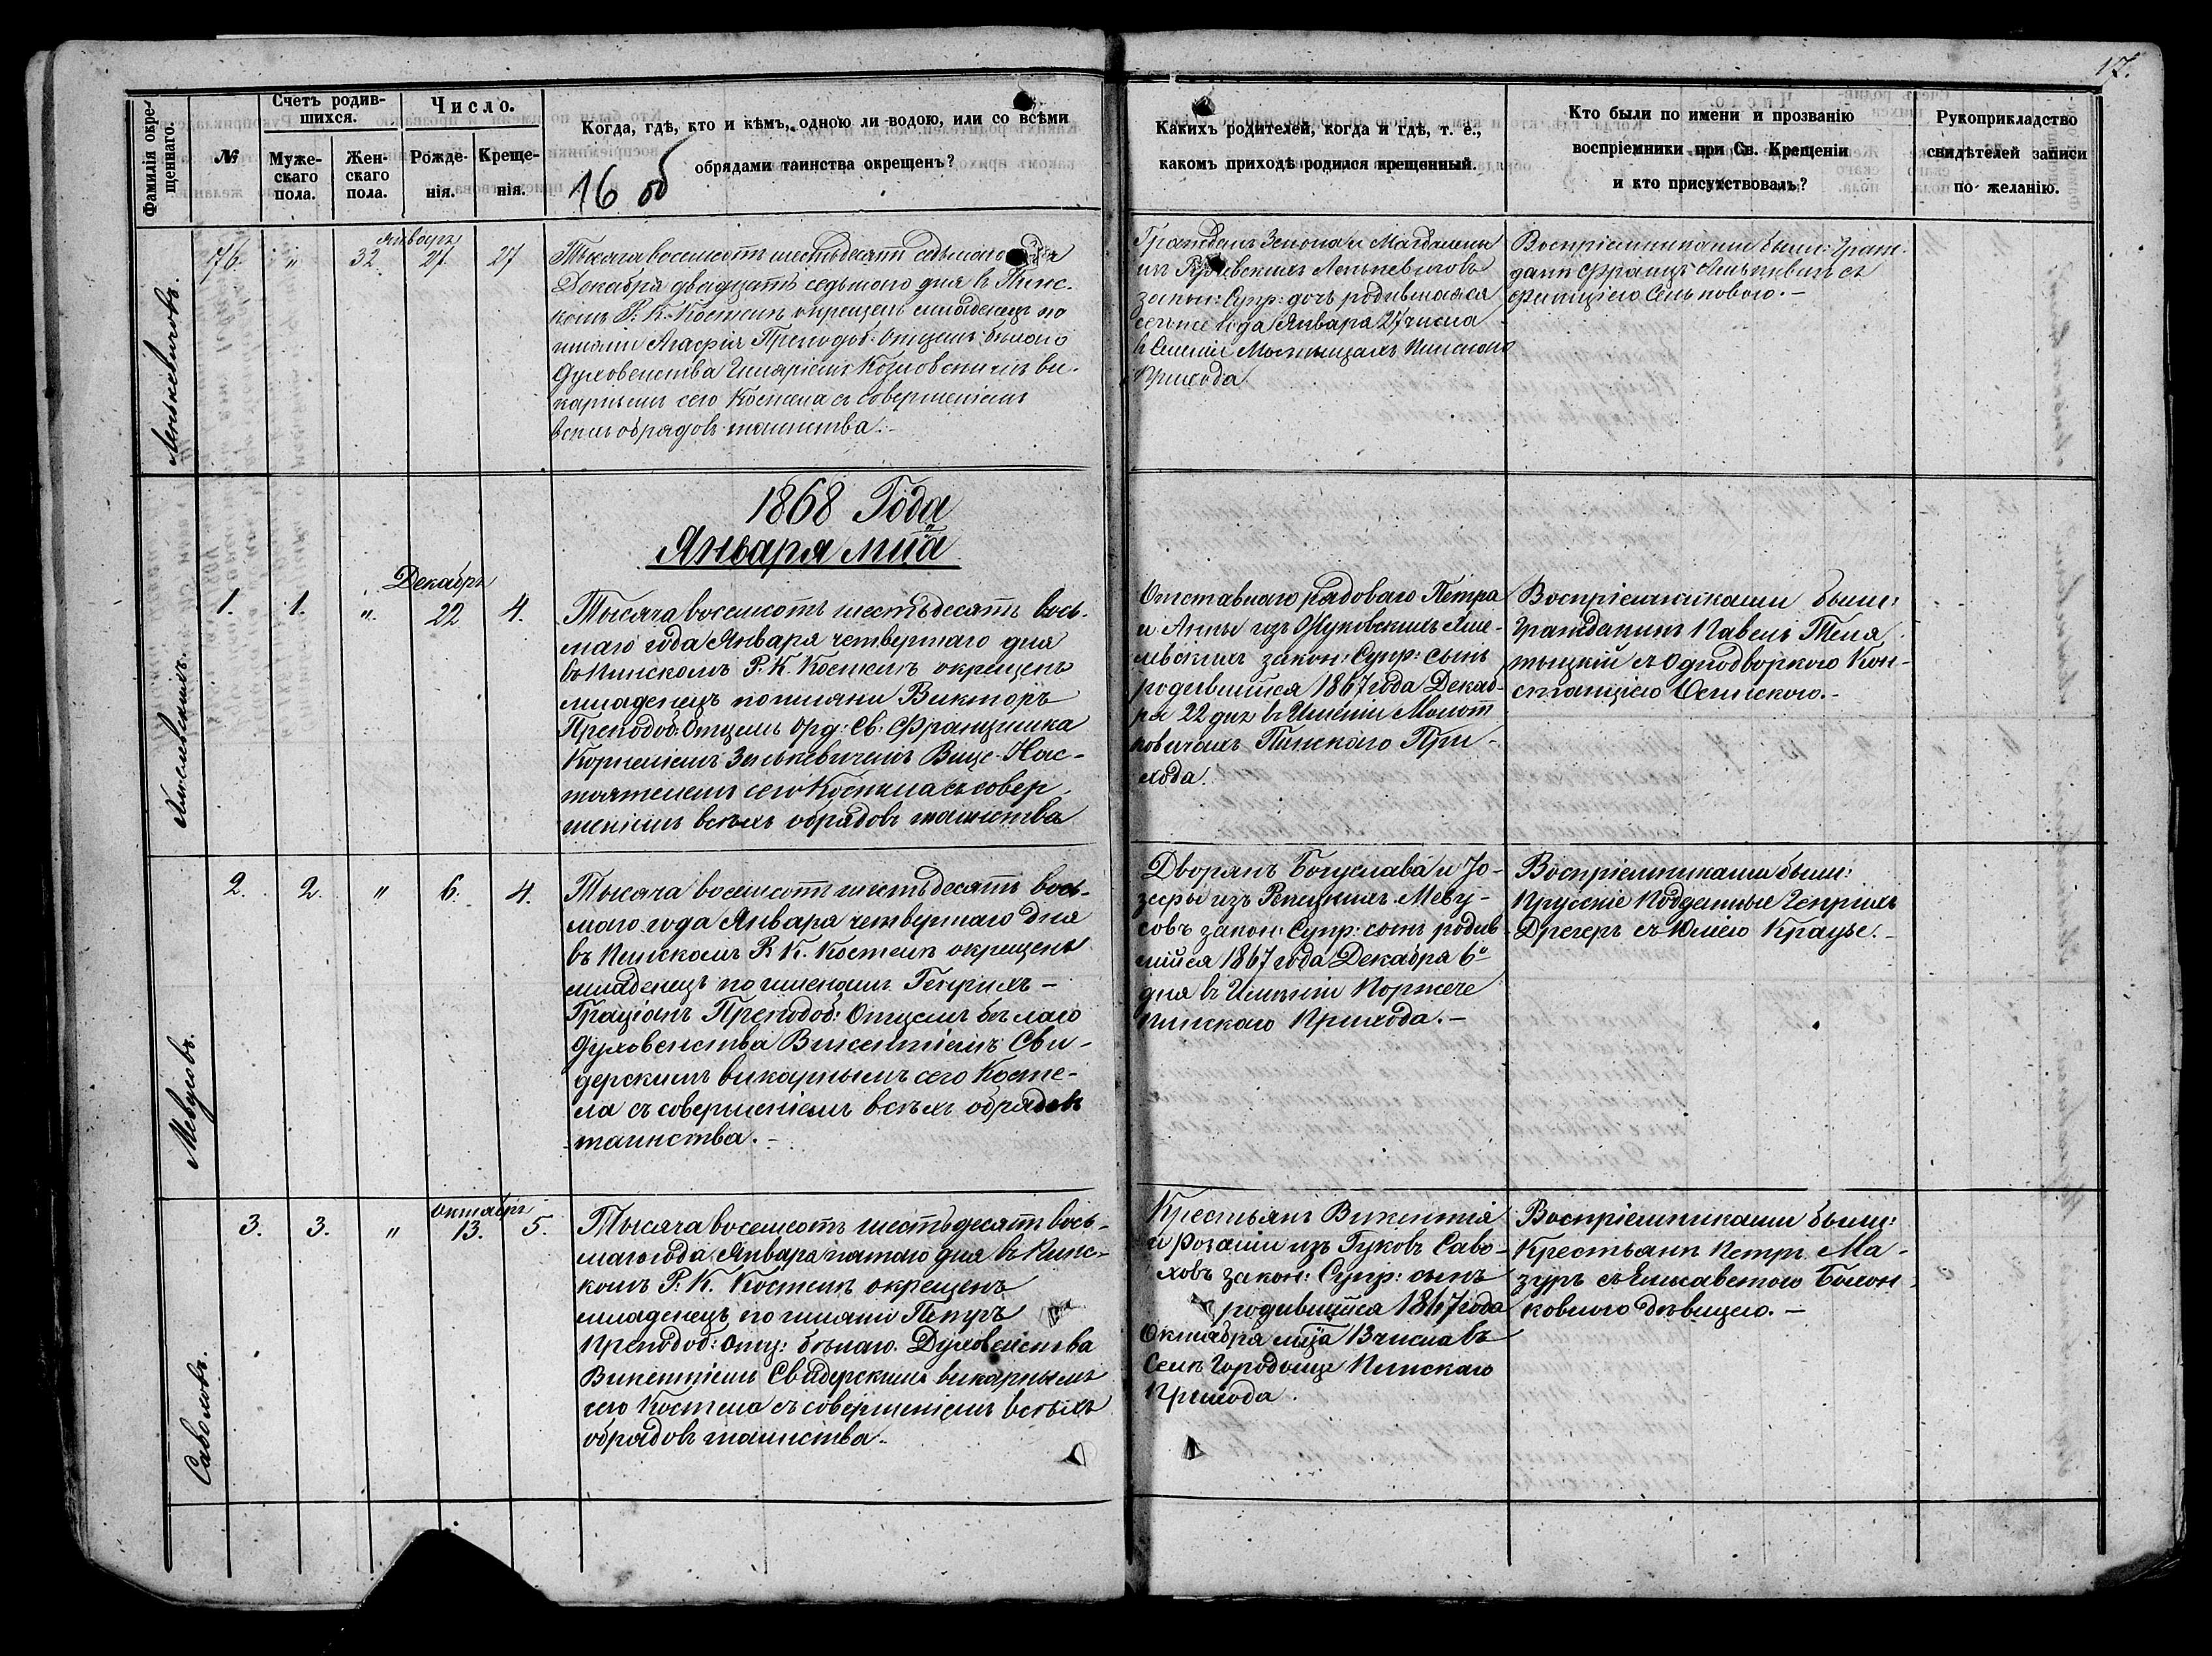 17.
Фамилія окре-
щеннаго.
№
Счетъ родив-
шихся.
Муже-
скаго
пола.
Жен-
скаго
пола.
Число.
Рожде-
нія.
Креще-
нія.
Когда, гдѣ, кто и кѣмъ, одною ли водою, или со всѣми
обрядами таинства окрещенъ?
16 об
Какихъ родителей, когда и гдѣ, т. е.,
какомъ приходѣ родился крещенный.
Кто были по имени и прозванію
воспріемники при Св. Крещеніи
и кто присутствовалъ?
Рукоприкладство
свидѣтелей записи
по желанію.
Январь
76. " 32. 27. 27
Тысяча восемьсотъ шестьдесятъ седьмого
Декабря двадцать седьмого дня въ Пинс-
комъ Р. К. Костелѣ окрещенъ младенецъ по
имени Преподоб: Отцемъ бѣлаго
Духовенства Козловскимъ ви-
карнымъ сего Костела съ совершеніемъ
всѣхъ обрядовъ таинства. -
Гражданъ Зенона и Магдалены
изъ
закон: Супр: дочь родившаяся
сего года Января 27 числа
въ Имѣніи Пинскаго
Прихода
Воспріемниками были: граж-
данъ Францъ съ
1868 Года
Января мца
Декабрь
1. 1. ". 22 4.
Тысяча восемьсотъ шестьдесятъ вось-
маго года Января четвертаго дня
въ Пинскомъ Р. К. Костелѣ окрещенъ
младенецъ по имяни Викторъ
Преподоб: Отцемъ Орд: Св: Францишка
Корнеліемъ Зенькевичемъ Вице-Нас-
тоятелемъ сего Костела съ совер
шеніемъ всѣхъ обрядовъ таинства
Отставнаго рядоваго Петра
и Анны изъ Жуковскихъ Хме-
левскихъ закон: Супр: сынъ
родившійся 1867 года Декаб-
ря 22 дня въ Имѣніи Молот
ковичахъ Пинскаго При-
хода.
Воспріемниками были:
Гражданинъ Павелъ Теля
тыцкій съ Однодворкою Кон-
станціею
Мевусовъ.
2. 2. " 6. 4.
Тысяча восемьсотъ шестьдесятъ вось-
маго года Января четвертаго дня
въ Пинскомъ Р. К. Костелѣ окрещенъ
младенецъ по именамъ Генрихъ -
Граціанъ Преподоб: Отцемъ бѣлаго
Духовенства Викентіемъ Сви-
дерскимъ викарнымъ сего Косте-
ла съ совершеніемъ всѣхъ обрядовъ
таинства. -
Дворянъ Богуслава и Іо-
зефы изъ Репицкихъ Меву-
совъ закон: Супр: сынъ родив-
шійся 1867 года Декабря 6
дня въ Имѣніи
Пинскаго Прихода. -
Воспріемниками были:
Прусскіе Подданные Генрихъ
Дрегеръ съ Юліею Краузе. -
Саволовъ.
Октябрь
3. 3. " 13. 5.
Тысяча восемьсотъ шестьдесятъ вось-
маго года Января пятаго дня въ Пинс-
комъ Р. К. Костелѣ окрещенъ
младенецъ по имяни Петръ
Преподоб: Отц: бѣлаго Духовенства
Викентіемъ Свидерскимъ викарнымъ
сего Костела съ совершеніемъ всѣхъ
обрядовъ таинства. -
Крестьянъ Викентія
и Розаліи изъ Гуковъ Саво-
ловъ закон: Супр: сынъ
родившійся 1867 года
Октября мца 13 числа въ
Селѣ Городище Пинскаго
Прихода.
Воспріемниками были:
Крестьянъ Петръ Ма-
зуръ съ Елисаветою Болон
ковною дѣвицею. -